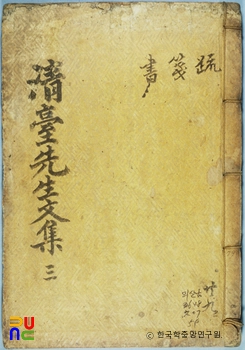 疏
箋
書
淸臺先生文集 三
ⓒ 한국학중앙연구원